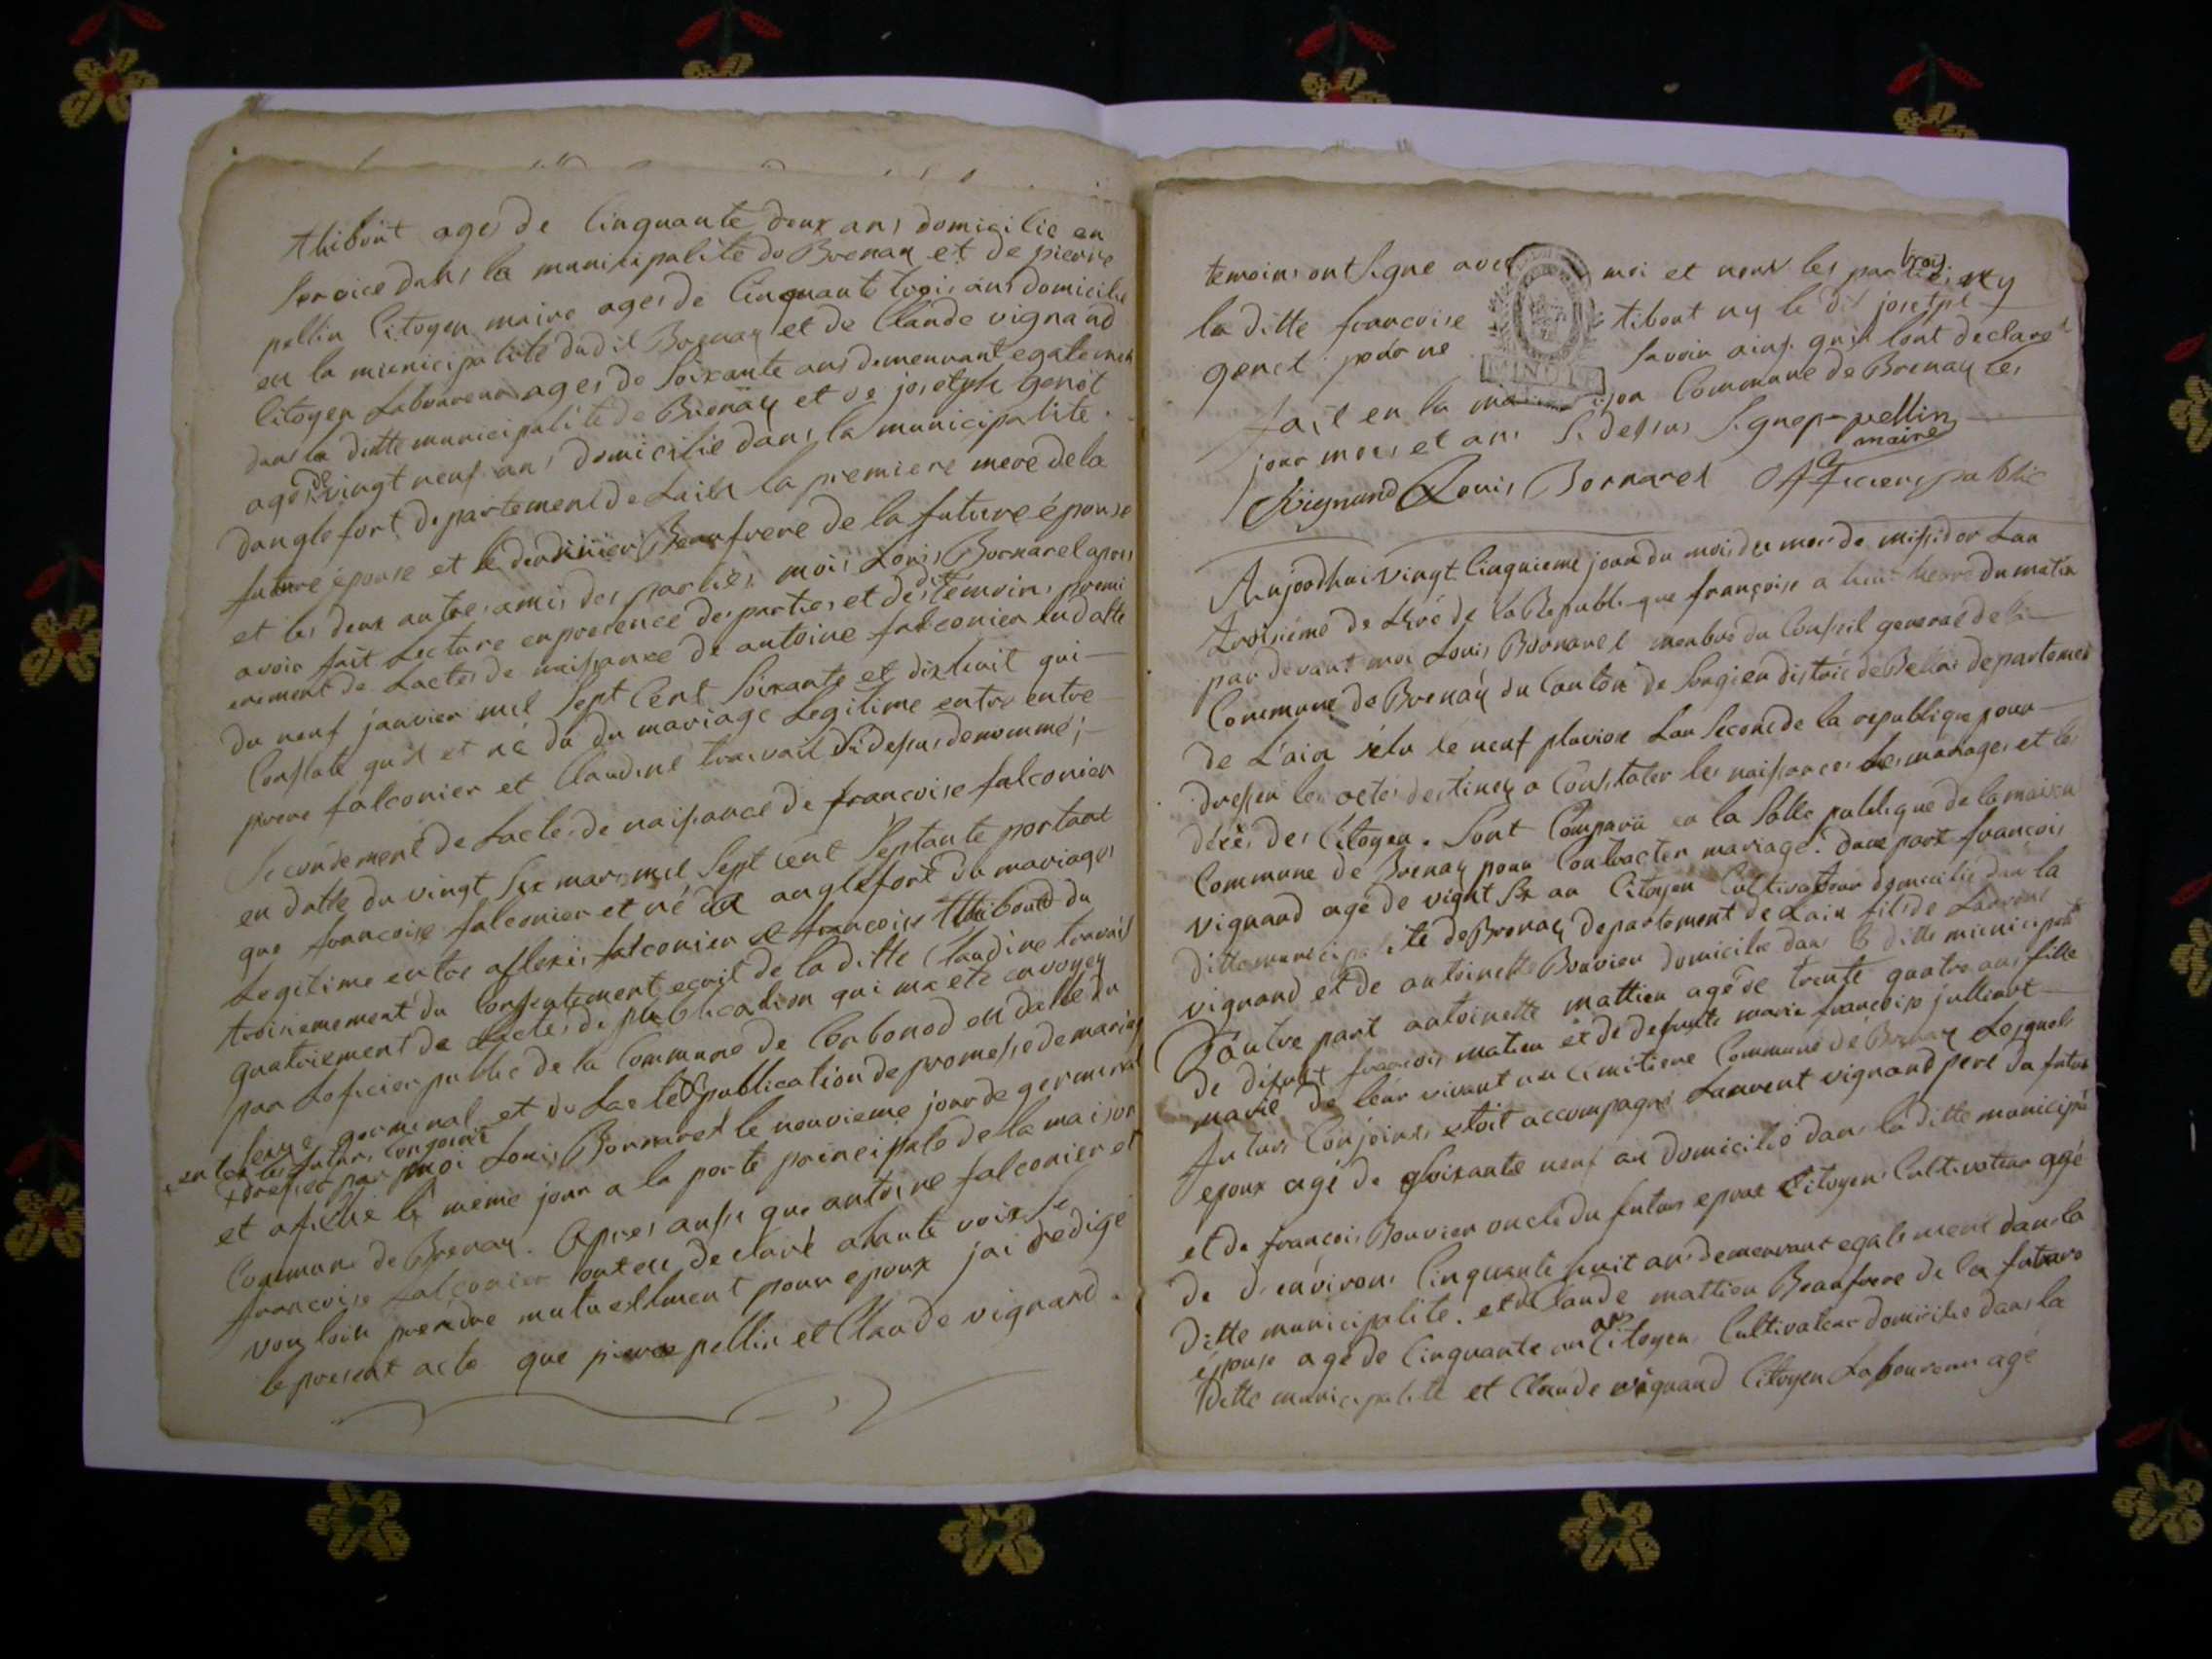 thibout ages de Cinquante deux ans domicilie en
service dans la municipalite de Brenay et de pierre
pellin Citoyen maire ages de Cinquante trois ans domicilie
en la municipalite dudit Brenay et de Claude vignand
Citoyen Laboureur ages de Soixante ans demeurant egalement
dans la ditte municipalite de Brenay et de josetph genet
ages de vingt neuf ans domicilie dans la municipalite
danglefort departement de Lain la premiere mere de la
future épouse et le dernier Beaufrere de la future épouse
et les deux autres amis des parties mois Louis Bornarel apres
avoir fait Lecture en presence des parties et des dit temoins premi
erement de Lactes de naissance de antoine falconier en datte
du neuf janvier mil Sept Cent Soixante et dixhuit qui
Constate quil et né du du mariage Legitime entre entre
pierre falconier et Claudine travail Sidessus denommé;
Secondement de Lacte de naissance de francoise falconier
en datte du vingt Six mars mil Sept Cent Septante portant
que francoise falconier et né da anglefort du mariages
Legitime entre aflexis falconier et francoise thiboud du
troisiemement du Consentement ecrit de la ditte Claudine travail
quatriement de Lactes de publication qui ma ete envoyey
par Loficier public de la Commune de Corbonod en datte du
seize germinal et de Lacte de publication de promesse de mariag
entre les futurs Conjoint
+ dressé par moi Louis Bornarel le neuvieme jour de germinal
et afiché le meme jour a la porte principale de la maison
Commune de Brenay. Apres aussi que antoine falconier et
francoise falconier ont eu declaré ahaute voix se
vouloir prendre mutuellment pour epoux jai redigé
le present acte que pierre pellin et Claude vignand
temoins ont Signe avec moi et nons les parties trois ny
la ditte francoise tibout ny le dit josetph
genet pour ne savoir ainsi quil lont declaré
fait en la maison Commune de Brenay les
jour mois et ans Si dessus Signep pellin
maire
Cvignand Louis Bornarel Officier public
Aujoordhui vingt Cinquieme jour du mois du mois de missidor Lan
troisiéme de Léré de la Republique françoise a huit heure du matin
par devant moi Louis Bornarel menbre du Conseil general de la
Commune de Brenay du Canton de Songieu distric de Bellai departemen
de L'ain élu le neuf pluvios Lan Second de la republique pour
dresser les actes destinez a Constater les naissances les mariages et les
décès des Citoyen. Sont Comparu en la Salle publique de la maison
Commune de Brenay pour Contracter mariage. dune part françois
vignand agé de vight Six an Citoyen Cultivateur domicilie dan la
ditte municipalite de Brenay departement de Lain fils de Laurent
vignand et de antoinette Bouvier domicilie dans la ditte municipalit
Dautre part antoinette mattieu agé de trente quatre ans fille
de difunt francois matieu et de defunte marie francoise julliart
marié de leur vivant au Cimitiere Commune de Brenay Lesquels
futurs Conjoints etoit accompagné Laurent vignand pere du futur
epoux agé de Soixante neuf an domicilié dans la ditte municipa
et de francois Bouvier oncle du futur epoux Citoyen Cultivateur agé
de denviron Cinquante huit ans demeurant egalement dans la
ditte municipalite. et Claude mattieu Beaufrere de la future
épouse agé de Cinquante un an Citoyen Cultivateur domicilie dans la
ditte municipalité et Claude vignand Citoyen Laboureur agé